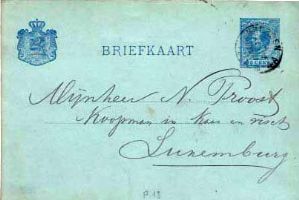 BRIEFKAART
Mijnheer N. Proost
Koopman in Kaas en visch
Luxemburg
P.18